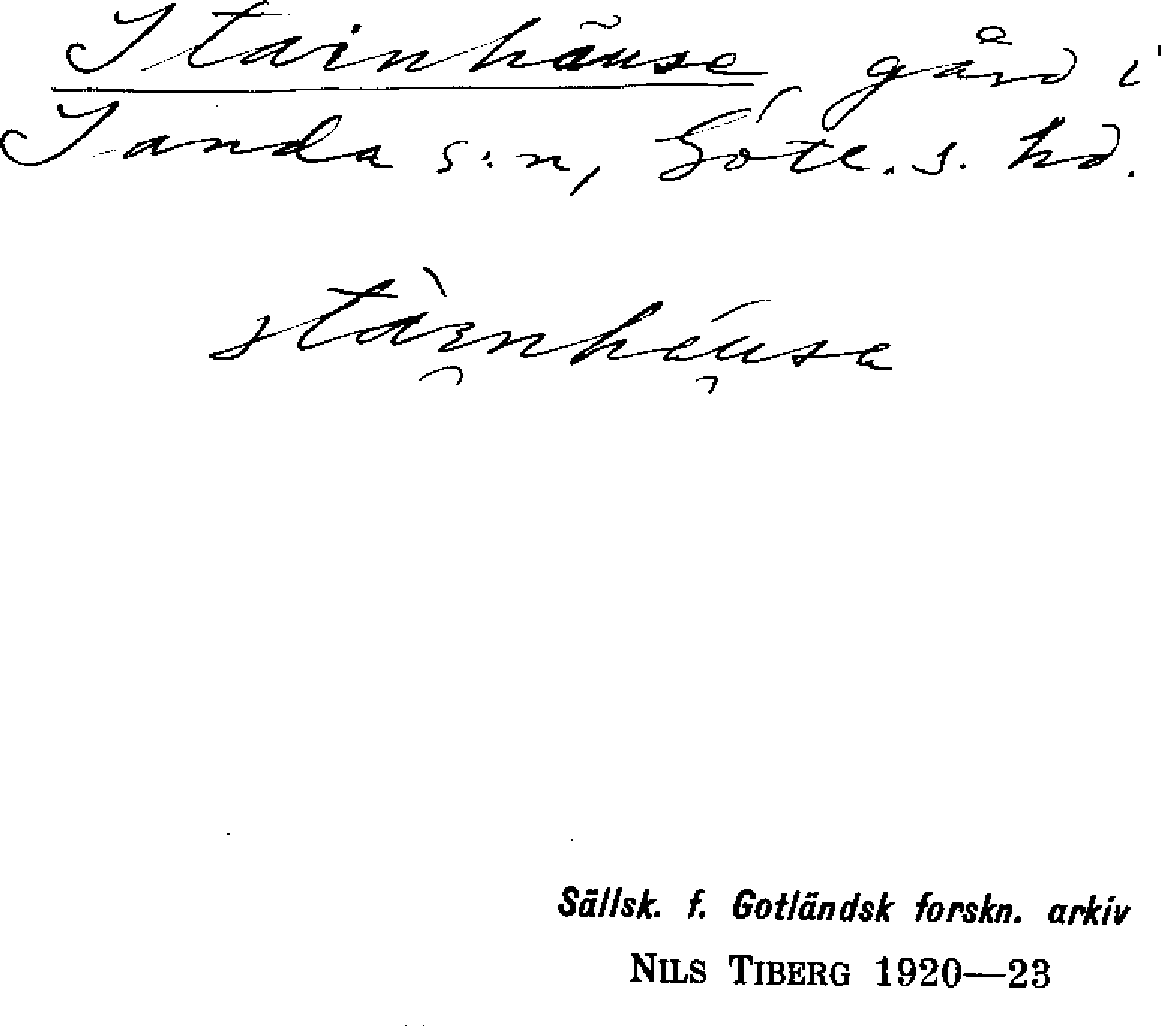 Stainhäuse gård i
Sanda s:n, Gotl. s. hd.
stàinhéusa
Sällsk. f. Gotländsk forskn. arkiv
NILS TIBERG 1920—23